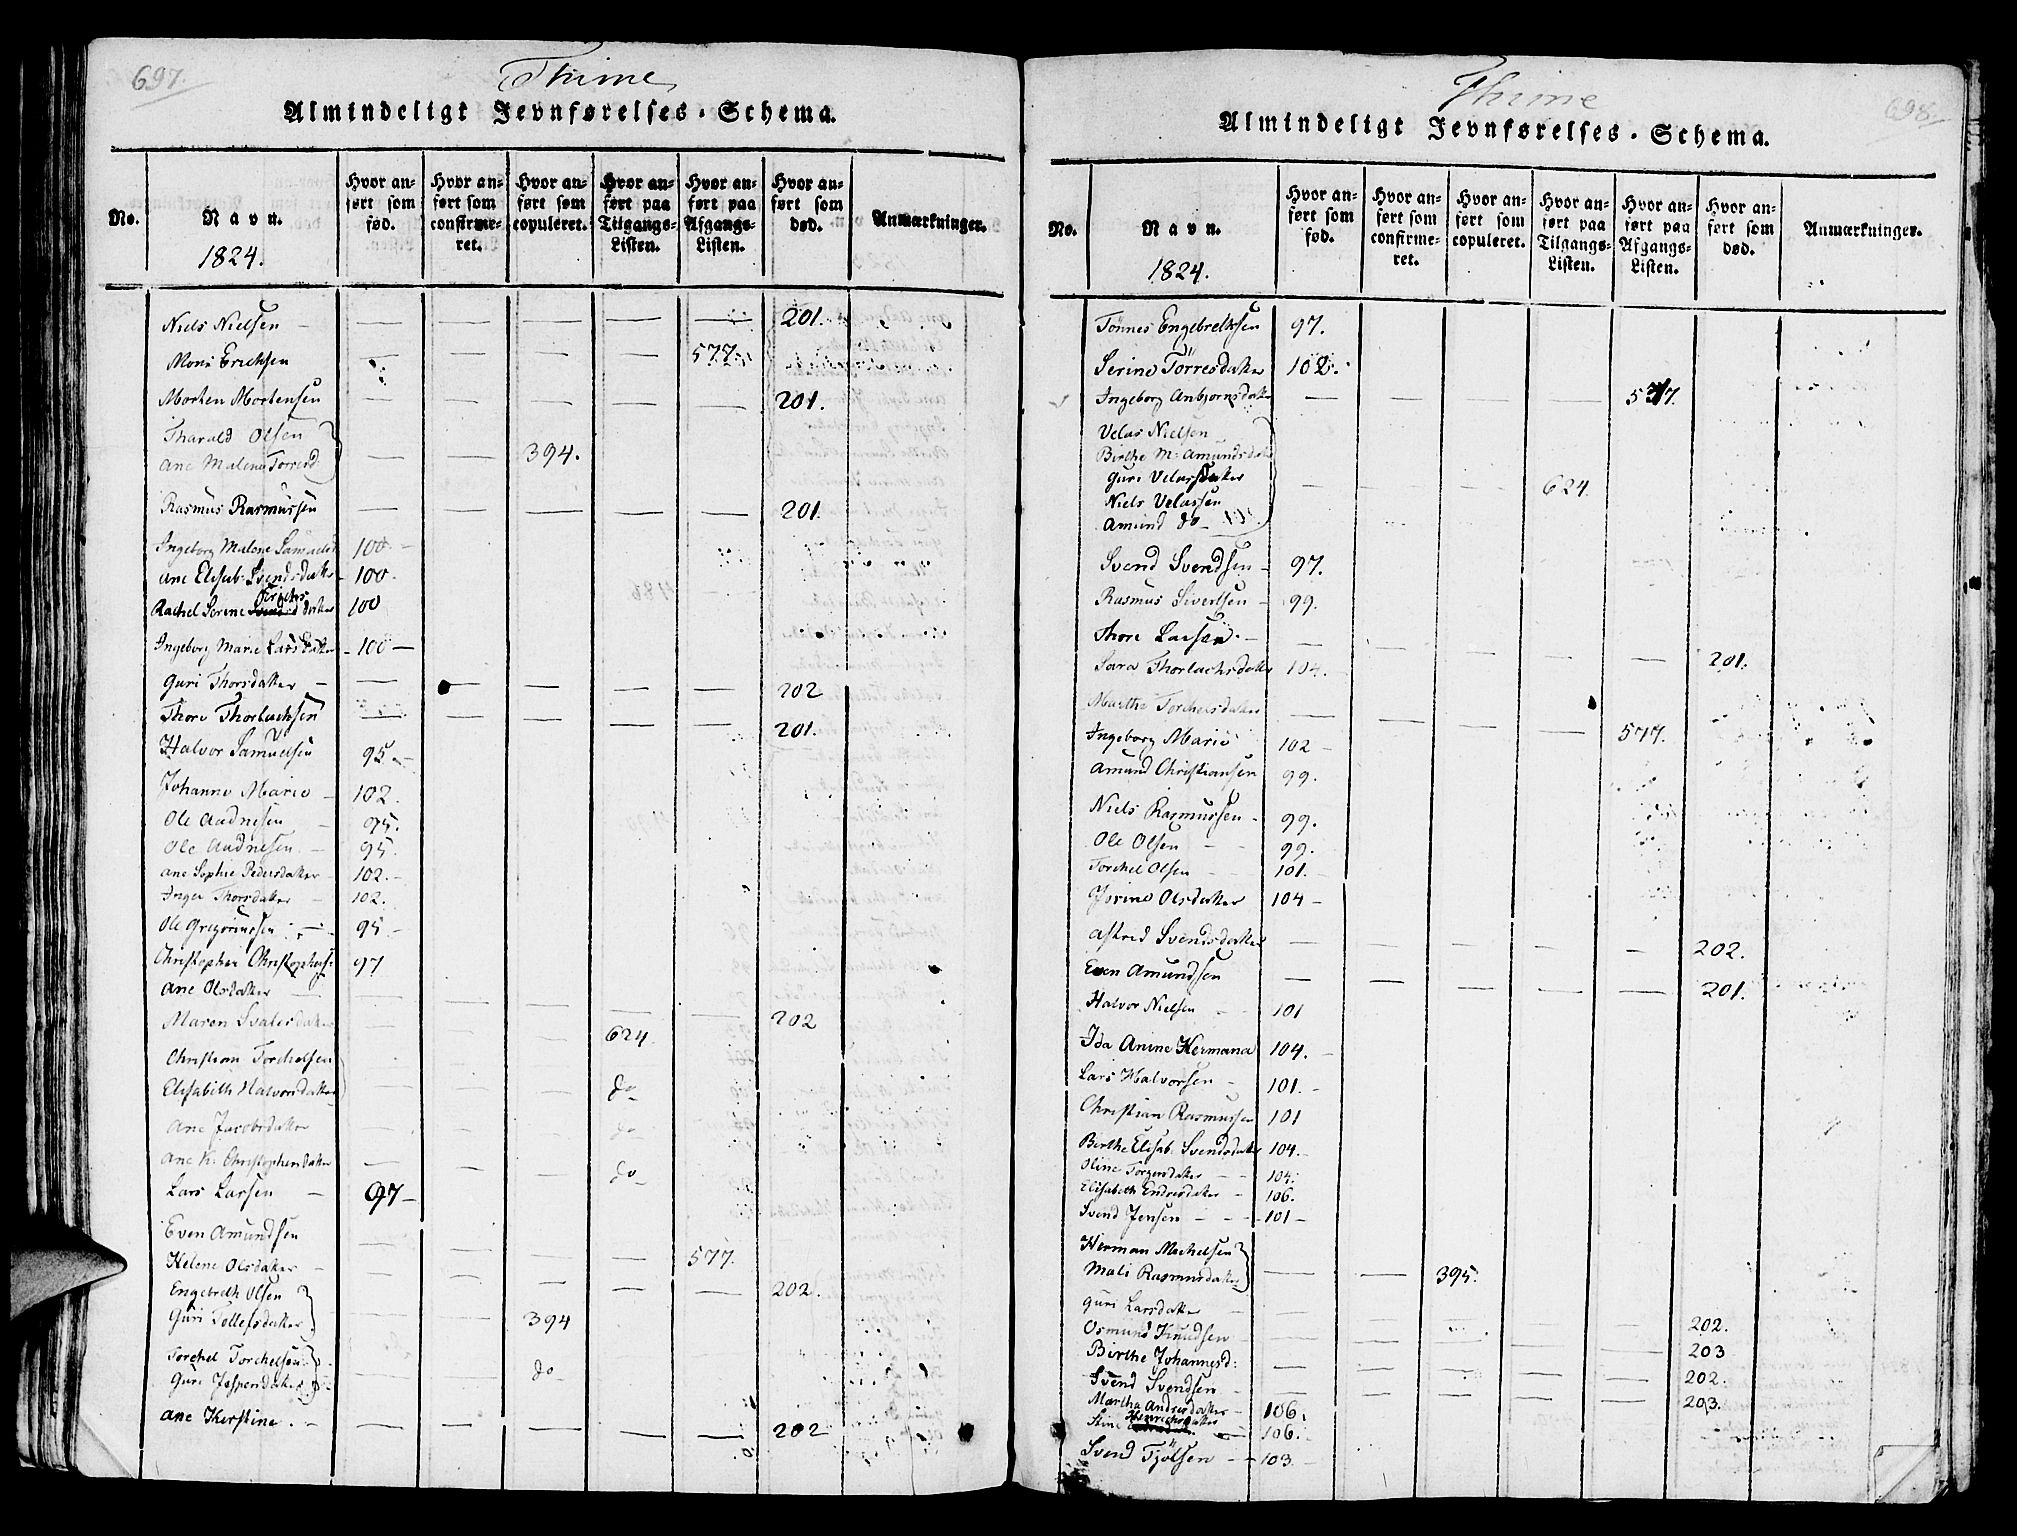 697.
Thime
Almindeligt Jevnførelses-Schema.
No.
Navn.
1824.
Hvor anført som fød.
Hvor anført som confirmeret.
Hvor anført som copuleret.
Hvor anført paa Tilgangs-Listen.
Hvor anført paa Afgangs-Listen.
Hvor anført som død.
Anmærkninger.
Niels Nielsen — — — — — — 201.
Mons Ericksen — — — — 577.
Morten Mortensen — — — — — 201.
Tharald Olsen
Ane Malene Torresd — — 394.
Rasmus Rasmussen — — — — — 201.
Ingeborg Malene Samuelsd 100 —
Ane Elisab. Svendsdatter 100.
Rachel Serine datter 100
Ingeborg Marie Larsdatter — 100 —
Guri Thorsdatter — — — — — — 202
Thore Thorlachsen — — — — — 201.
Halvor Samuelsen 95. —
Johanne Marie — 102.
Ole Audnesen — 95.
Ole Audnesen — 95.
Ane Sophie Pedersdatter — 102. —
Inger Thorsdatter — 102.
Ole Gregoriussen — 95. —
Christopher Christophers: 97
Ane Olsdatter — — — — — — 202
Maren Svalesdatter — — — 624.
Christian Torchelsen
Elisabeth Halvorsdatter — — — do
Ane Jacobsdatter — — — do
Ane K. Christophersdatter — — — do
Lars Larsen — 97 —
Even Amundsen — — — — 577.
Helene Olsdatter — — — — — — 202.
Engebreth Olsen
Guri Tollefsdatter — — 394
Torchel Torchelsen
Guri Jespersdatter — — do
Ane Kirstine. — — — — — — 202
698.
Thime
Almindeligt Jevnførelses-Schema.
No.
Navn.
1824.
Hvor anført som fød.
Hvor anført som confirmeret.
Hvor anført som copuleret.
Hvor anført paa Tilgangs-Listen.
Hvor anført paa Afgangs-Listen.
Hvor anført som død.
Anmærkninger.
Tönnes Engebrethsen 97.
Serine Törresdatter 102.
Ingeborg Anbjornsdatter — — — — 577.
Velas Nielsen
Birthe M: Amundsdatter
Guri Velasdatter
Niels Velassen — — — 624.
Amund do
Svend Svendsen — 97.
Rasmus Sivertsen — 99.
Thore Larsen — — — — — — 201.
Sara Thorlachsdatter 104.
Marthe Torchelsdatter — — — — 577.
Ingeborg Marie 102 —
Amund Christiansen 99.
Niels Rasmussen — 99.
Ole Olsen — — 99.
Torchel Olsen — — 101.
Jorine Olsdatter 104 —
Astred Svendsdatter — — — — — 202.
Even Amundsen — — — — — 201.
Halvor Nielsen — — 101
Ida Anine Hermana 104. —
Lars Halvorsen — 101. —
Christian Rasmussen 101
Birthe Elisab. Svendsdatter 104. —
Oline Torgersdatter — — 104.
Elisabeth Endresdatter — 106.
Svend Jensen — — — 101 —
Herman Machelsen
Mali Rasmusdatter — — 395.
Guri Larsdatter — — — — — — 202.
Osmund Knudsen — — — — — 203
Birthe Johannesd: — — — — — 202.
Svend Svendsen — — — — — — 203.
Martha Andresdatter — 106.
Stine Henrichsdatter — 106.
Svend Tjölsen — — 103. —